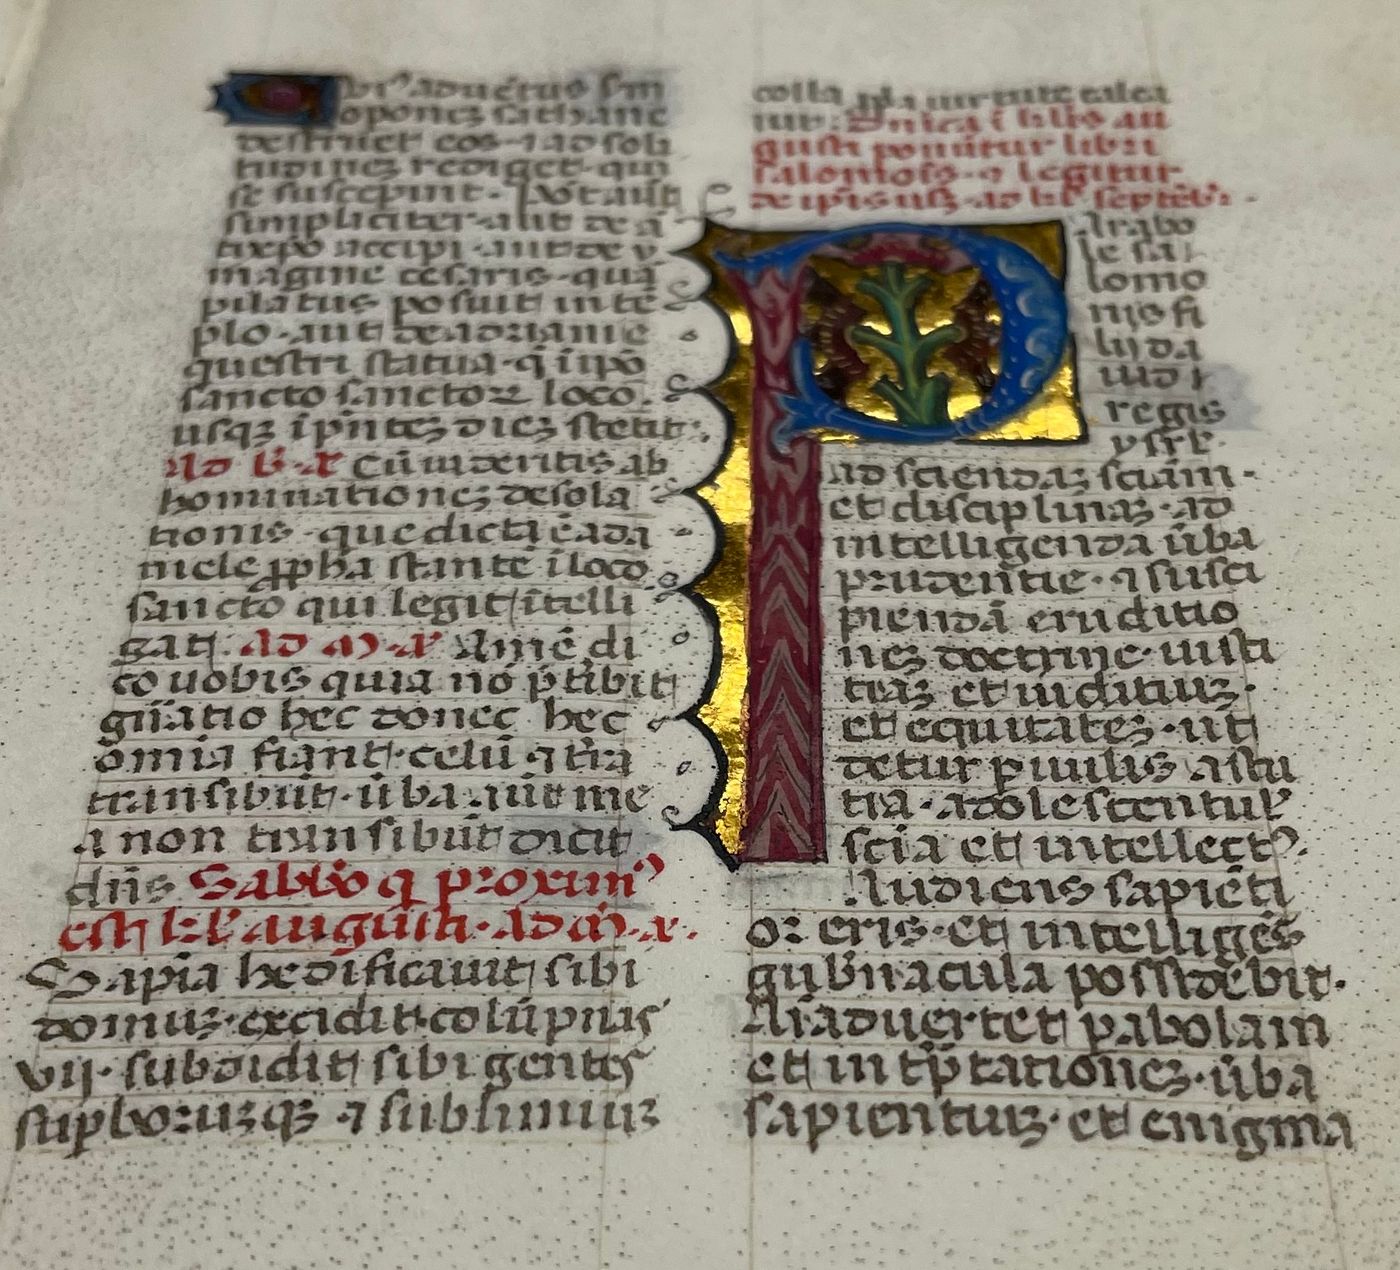 destruet eos ⁊ ad soli
tudinez rediget qui
se susceperint. Potaūt
simpliciter aut de ā
tixpo accipi. aut de y
magine cesaris. quā
pilatus posuit in tē
plo. aut de adrianie
questri statua. q̄ ī ipō
sancto sanctoꝝ loco.
usqꝫ ī p̄ntez diez stetit.
Ad b̄. a͞ Cū uideritis ab
hominationez desola
tionis. que dicta ē a da
niele ꝓpha stante ī loco
sancto qui legit ītelli
gat. Ad m̄. a͞ Amē di
co uobis quia nō p̄tībit
gn̄atio hec donec hec
omia fiant. celū ⁊ tr̄a
transibūt. ūba aūt me
a non transibūt dicit
dn̄s Sabb̄o q̄ proximꝰ
est kl̄ augusti. Ad m̄. a͞.
Sapiā hedificauit sibi
domuꝫ. excidit colūpnas
vij. subdidit sibi gentes
supborūqꝫ ⁊ sublimiuꝫ
colla ꝓpia uirtute calca
uit. Dn̄ica ī kl̄is au
gusti ponūtur libri
salomoīs. ⁊ legitur
de ip̄is usqꝫ ad kl̄ septēbr̄.
Parabo
le sa
lomo
nis fi
lij da
uid r
regis
ysrl̄.
ad sciendaꝫ sciām.
et disciplinaꝫ. ad
intelligenda ūba
prudentie. ⁊ susci
piendā eruditio
nez doctrine. iusti
tiaꝫ et iudiciuꝫ.
et equitatez. ut
detur paruulis astu
tia. adolescentulꝭ
sciā et intellectꝰ.
Audiens sapiēti
oꝛ eris. et intelligēs
gub̄nacula possidebit.
Aīaduertet pabolam
et intp̄tationez. ūba
sapientuꝫ. et enigma